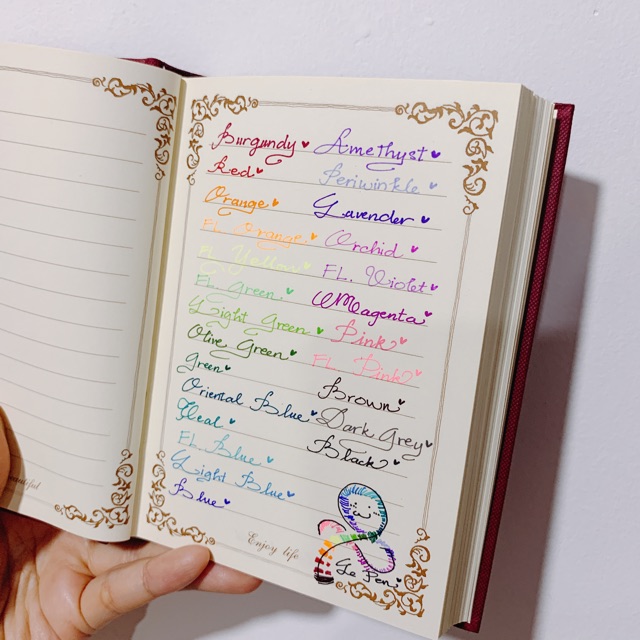 Burgundy
Red
Orange
FL. Orange
FL. Yellow
FL. Green
Light Green
Olive Green
Green
Oriental Blue
Teal
FL. Blue
Light Blue
Blue
Amethyst
Periwinkle
Lavender
Orchid
FL. Violet
Magenta
Pink
FL. Pink
Brown
Dark Grey
Black
Le Pen
Enjoy life